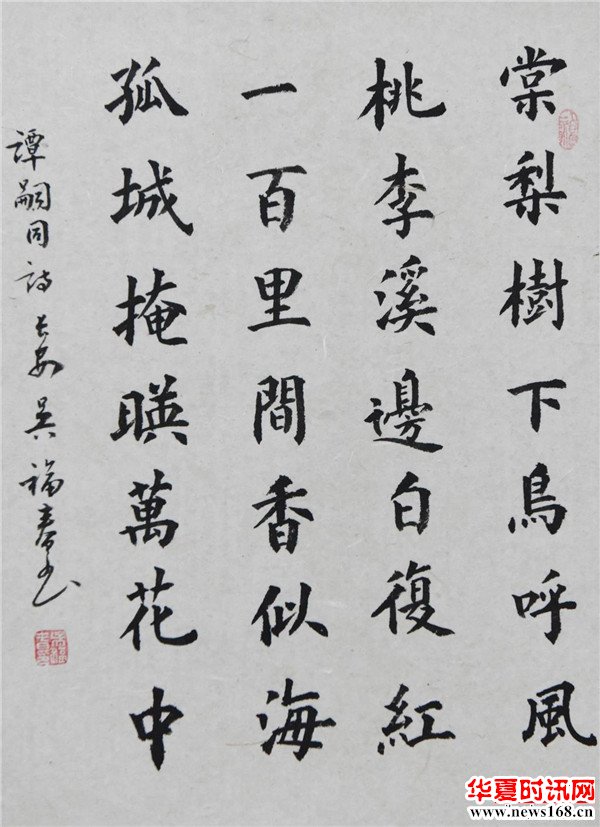 棠梨樹下鳥呼風
桃李溪邊白復紅
一百里間香似海
孤城掩暎萬花中
譚嗣同詩 長安 吳福春书
华夏时讯网
www.news168.cn